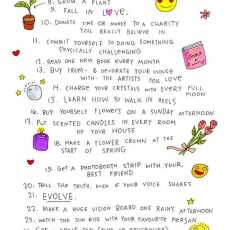 8. GROW A PLANT
9. FALL IN LOVE.
10. DONATE TIME OR MONEY TO A CHARITY
YOU REALLY BELIEVE IN
11. COMMIT YOURSELF TO DOING SOMETHING
PHYSICALLY CHALLENGING
12. READ ONE NEW BOOK EVERY MONTH
13. BUY FROM & DECORATE YOUR HOUSE
WITH THE ARTISTS YOU LOVE
14. CHARGE YOUR CRYSTALS WITH EVERY FULL
MOON
15. LEARN HOW TO WALK IN HEELS
16. BUY YOURSELF FLOWERS ON A SUNDAY AFTERNOON
17. PUT SCENTED CANDLES IN EVERY ROOM
OF YOUR HOUSE
18. MAKE A FLOWER CROWN AT THE
START OF SPRING
19. GET A PHOTOBOOTH STRIP WITH YOUR
BEST FRIEND
20. TELL THE TRUTH, EVEN IF YOUR VOICE SHAKES
21. EVOLVE.
22. MAKE A HUGE VISION BOARD ONE RAINY AFTERNOON
23. WATCH THE SUN RISE WITH YOUR FAVOURITE PERSON